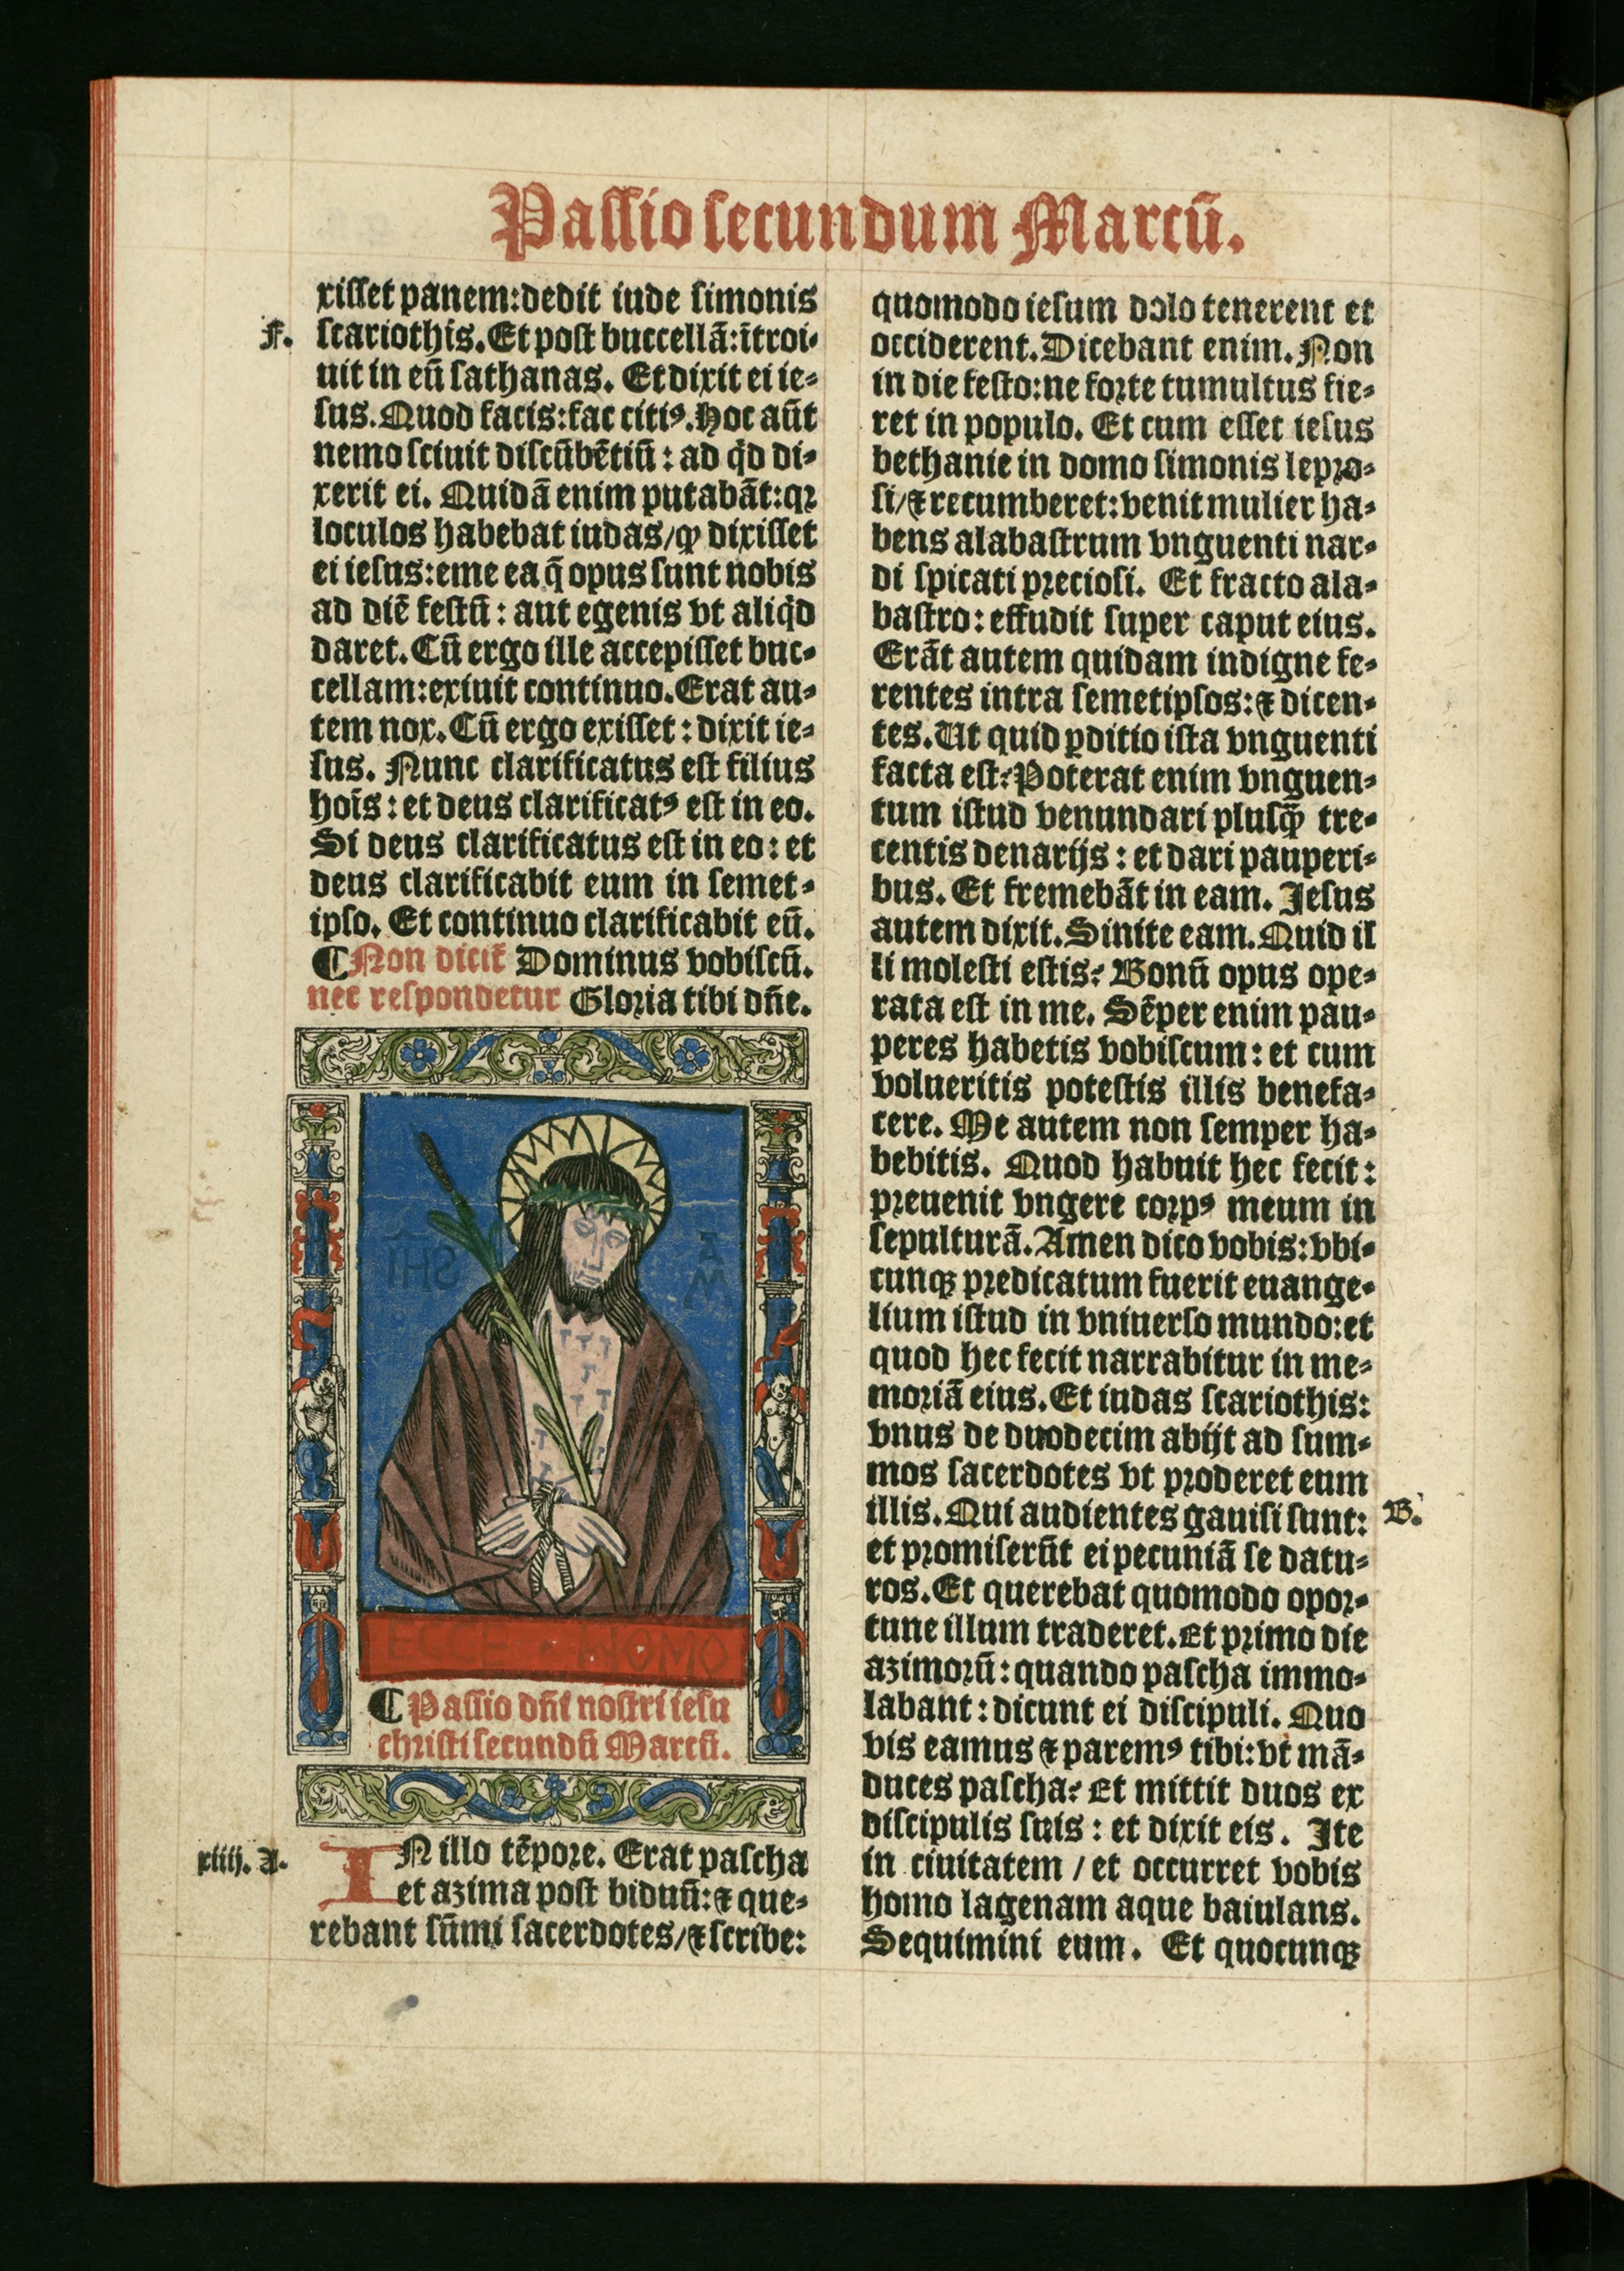 Passio secundum Marcū.
xisset panem:dedit iude simonis
F. scariothis. Et post buccellā:ītroi-
uit in eū sathanas. Et dixit ei ie-
sus. Quod facis:fac citiꝰ. Hoc aūt
nemo sciuit discūbētiū: ad qd̄ di-
xerit ei. Quidā enim putabāt:qꝛ
loculos habebat iudas/ꝙ dixisset
ei iesus:eme ea q̄ opus sunt nobis
ad diē festū: aut egenis vt aliqd̄
daret. Cū ergo ille accepisset buc-
cellam:exiuit continuo. Erat au-
tem nox. Cū ergo exisset: dixit ie-
sus. Nunc clarificatus est filius
hoīs: et deus clarificatꝰ est in eo.
Si deus clarificatus est in eo: et
deus clarificabit eum in semet-
ipso. Et continuo clarificabit eū.
¶ Non dicit̄ Dominus vobiscū.
nec respondetur Gloria tibi dn̄e.
ECCE · HOMO
¶ Passio dn̄i nostri iesu
christi secundū Marcū.
xliiij. A. IN illo tēpore. Erat pascha
et azima post biduū:⁊ que-
rebant sūmi sacerdotes/⁊ scribe:
quomodo iesum dolo tenerent et
occiderent. Dicebant enim. Non
in die festo:ne forte tumultus fie-
ret in populo. Et cum esset iesus
bethanie in domo simonis lepro-
si/⁊ recumberet:venit mulier ha-
bens alabastrum vnguenti nar-
di spicati preciosi. Et fracto ala-
bastro: effudit super caput eius.
Erāt autem quidam indigne fe-
rentes intra semetipsos:⁊ dicen-
tes. Ut quid ꝑditio ista vnguenti
facta est? Poterat enim vnguen-
tum istud venundari plusꝙ̄ tre-
centis denarijs: et dari pauperi-
bus. Et fremebāt in eam. Iesus
autem dixit. Sinite eam. Quid il
li molesti estis? Bonū opus ope-
rata est in me. Sēper enim pau-
peres habetis vobiscum: et cum
volueritis potestis illis benefa-
cere. Me autem non semper ha-
bebitis. Quod habuit hec fecit:
preuenit vngere corpꝰ meum in
sepulturā. Amen dico vobis:vbi-
cunqꝫ predicatum fuerit euange-
lium istud in vniuerso mundo:et
quod hec fecit narrabitur in me-
moriā eius. Et iudas scariothis:
vnus de duodecim abijt ad sum-
mos sacerdotes vt proderet eum
illis. Qui audientes gauisi sunt: B.
et promiserūt ei pecuniā se datu-
ros. Et querebat quomodo opor-
tune illum traderet. Et primo die
azimorū: quando pascha immo-
labant: dicunt ei discipuli. Quo
vis eamus ⁊ paremꝰ tibi:vt mā-
duces pascha? Et mittit duos ex
discipulis suis: et dixit eis. Ite
in ciuitatem / et occurret vobis
homo lagenam aque baiulans.
Sequimini eum. Et quocunqꝫ